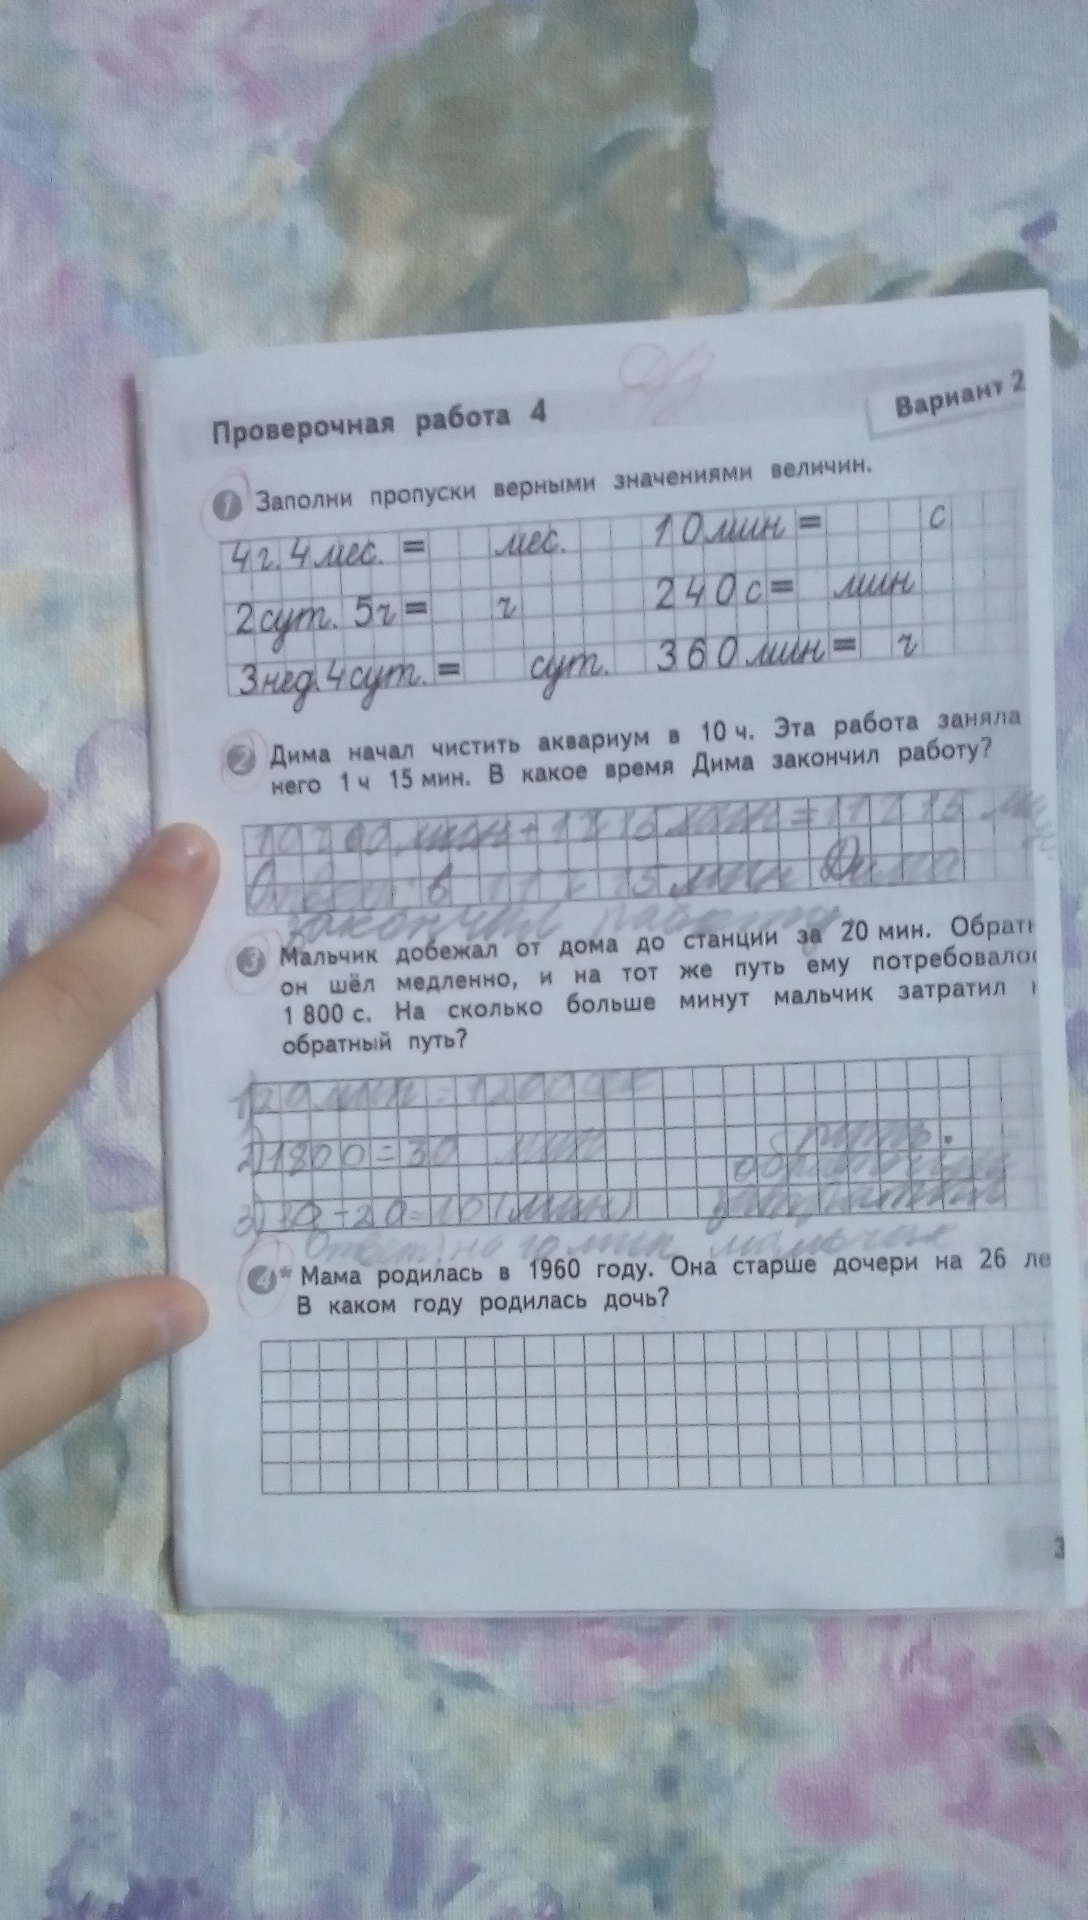 ДЗ
Проверочная работа 4
Вариант 2
1 Заполни пропуски верными значениями величин.
4 г. 4 мес. = мес. 10 мин = с
2 сут. 5 ч = ч 240 с = мин
3 нед. 4 сут. = сут. 360 мин = ч
2 Дима начал чистить аквариум в 10 ч. Эта работа заняла
него 1 ч 15 мин. В какое время Дима закончил работу?
10 ч 00 мин + 1 ч 15 мин = 11 ч 15 ми
Ответ: в 11 ч 15 мин Дима
закончил работу.
3 Мальчик добежал от дома до станции за 20 мин. Обратн
он шёл медленно, и на тот же путь ему потребовалос
1 800 с. На сколько больше минут мальчик затратил н
обратный путь?
1) 20 мин = 1200
2) 1800 = 30 мин
путь.
обратный
3) 30 - 20 = 10 (мин)
Ответ: на 10 мин мальчик
4* Мама родилась в 1960 году. Она старше дочери на 26 ле
В каком году родилась дочь?
3